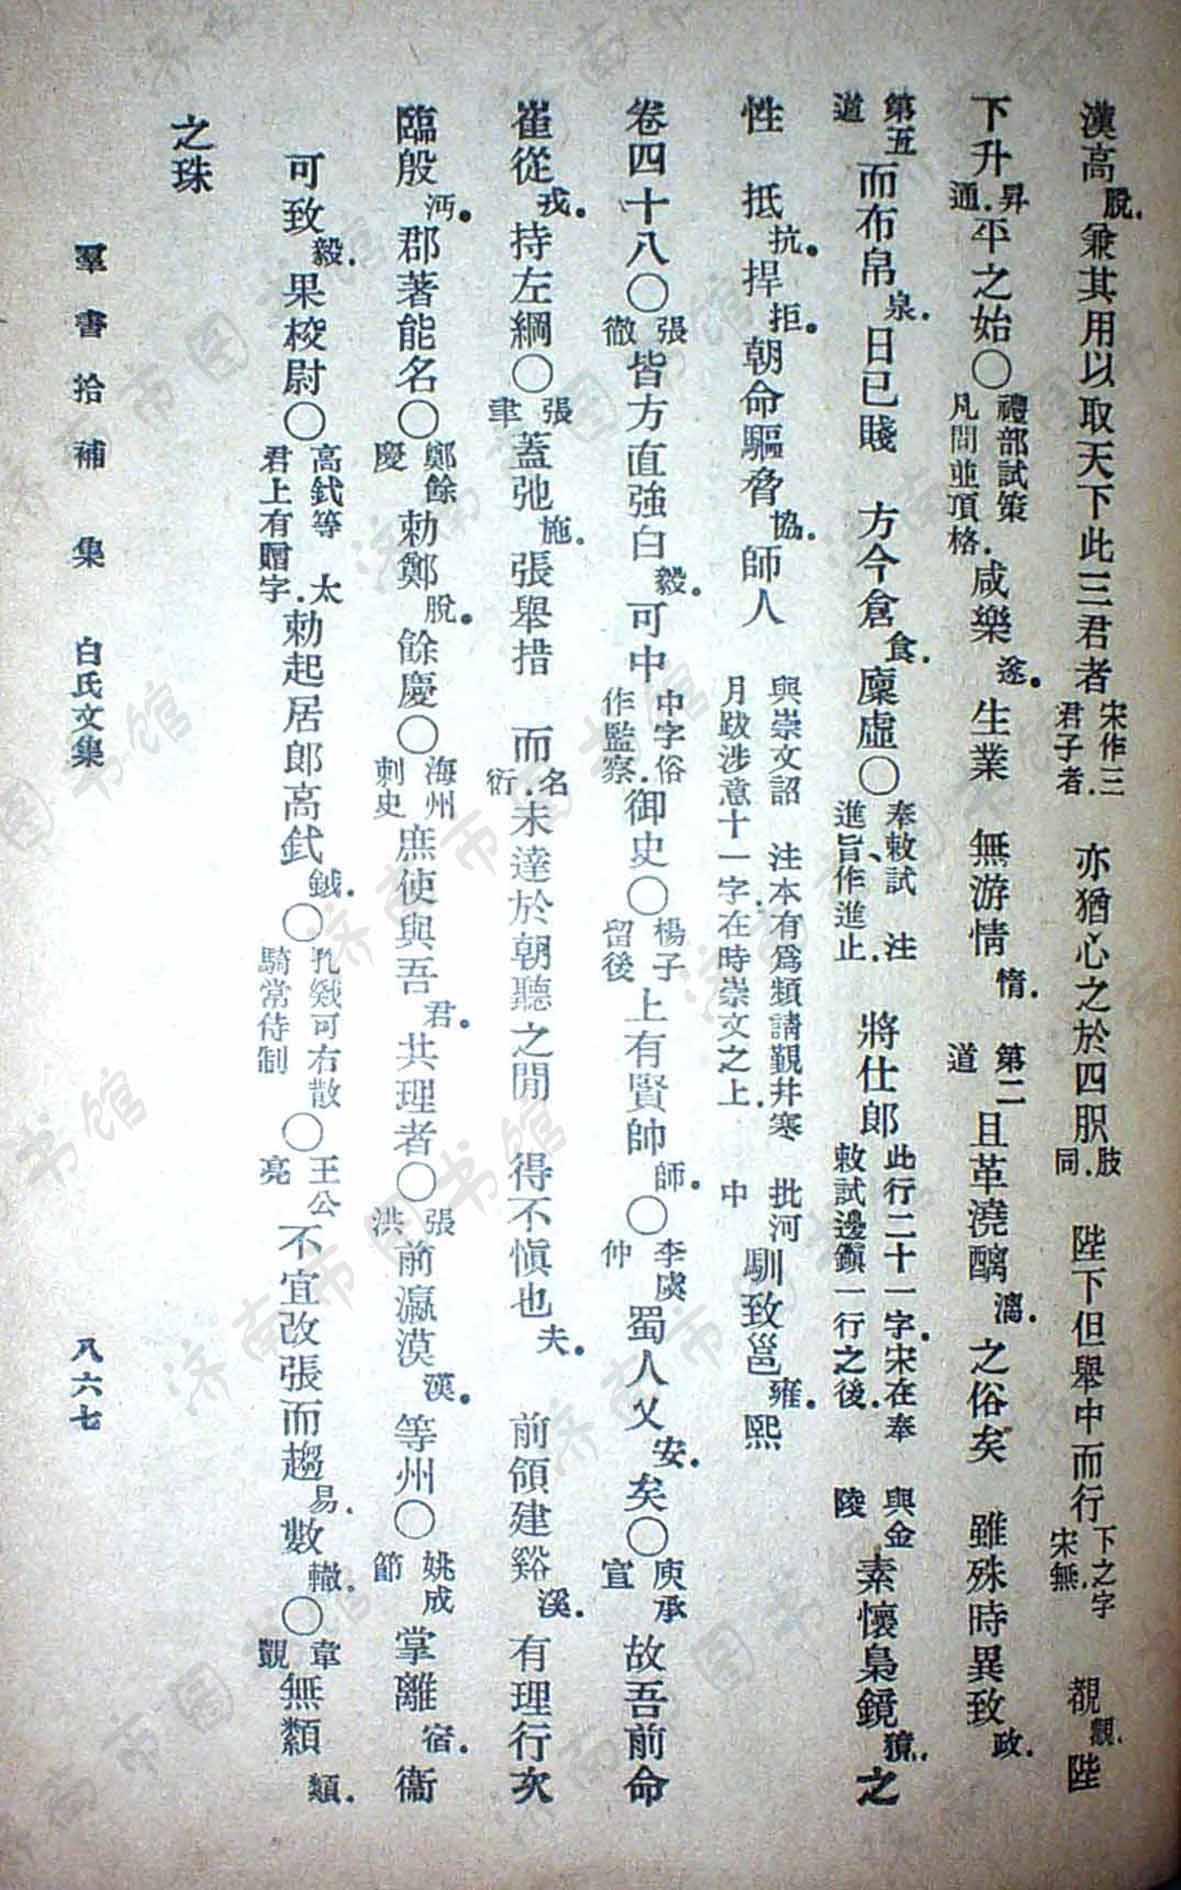 漢高脫兼其用以取天下此三君者宋作三君子者亦猶心之於四胑肢同陛下但舉中而行下之字宋無覩觀陛
下升昇通平之始○禮部試策凡問並頂格咸樂遂生業無游情惰第二道且革澆醨漓之俗矣雖殊時異致政
第五道而布帛泉日已賤方今倉食廩虛○奉敕試進注旨作進止將仕郎此行二十一字宋在奉敕試邊鎭一行之後與金陵素懷梟鏡獍之
性抵抗捍拒朝命驅脅協師人與崇文詔注本有爲類請覲幷寒月跋涉意十一字在時崇文之上批河中馴致邕雍熙
卷四十八○張徹皆方直強白毅可中中字俗作監察御史○楊子留後上有賢帥師○李虞仲蜀人乂安矣○庾承宣故吾前命
崔從戎持左綱○張聿蓋弛施張舉措而名衍未達於朝聽之閒得不愼也夫前領建谿溪有理行次
臨殷沔郡著能名○鄭餘慶勅鄭脫餘慶○海州刺史庶使與吾君共理者○張洪前瀛漠漢等州○姚成節掌離宿衞
可致毅果校尉○高釴等太君上有贈字勅起居郎高釴鉞○孔戣可右散騎常侍制○王公亮不宜改張而趨易數轍○韋覬無纇類
之珠
羣書拾補集白氏文集八六七